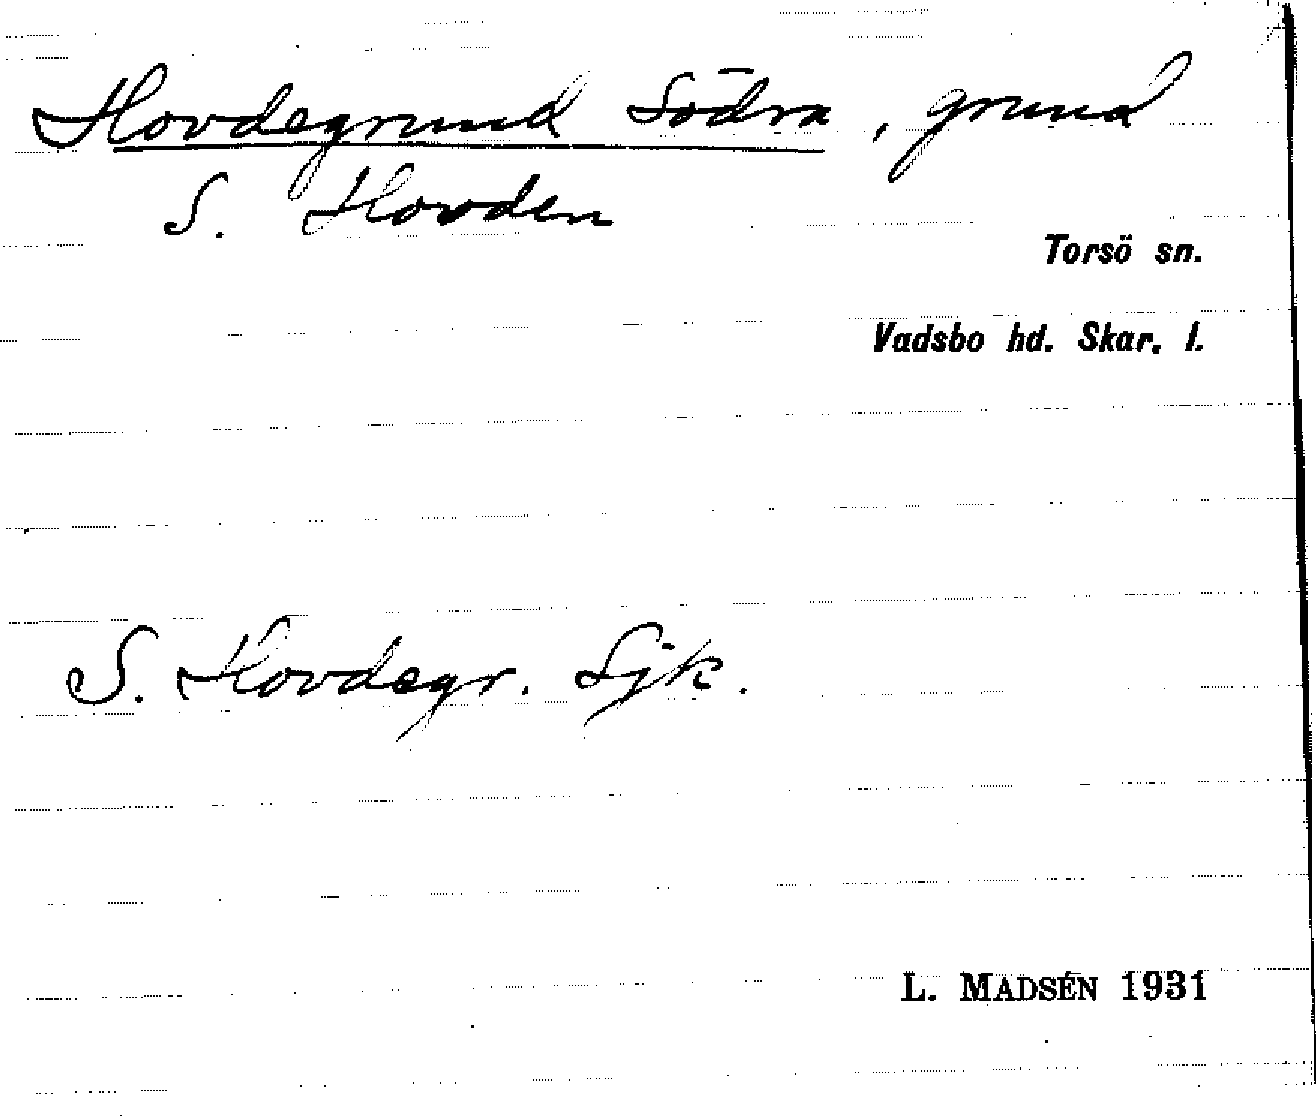 Hovdegrund Södra, grund
S. Hovden
Torsö sn.
Vadsbo hd. Skar. l.
S. Hovdegr. Sjk.
L. MADSÉN 1931